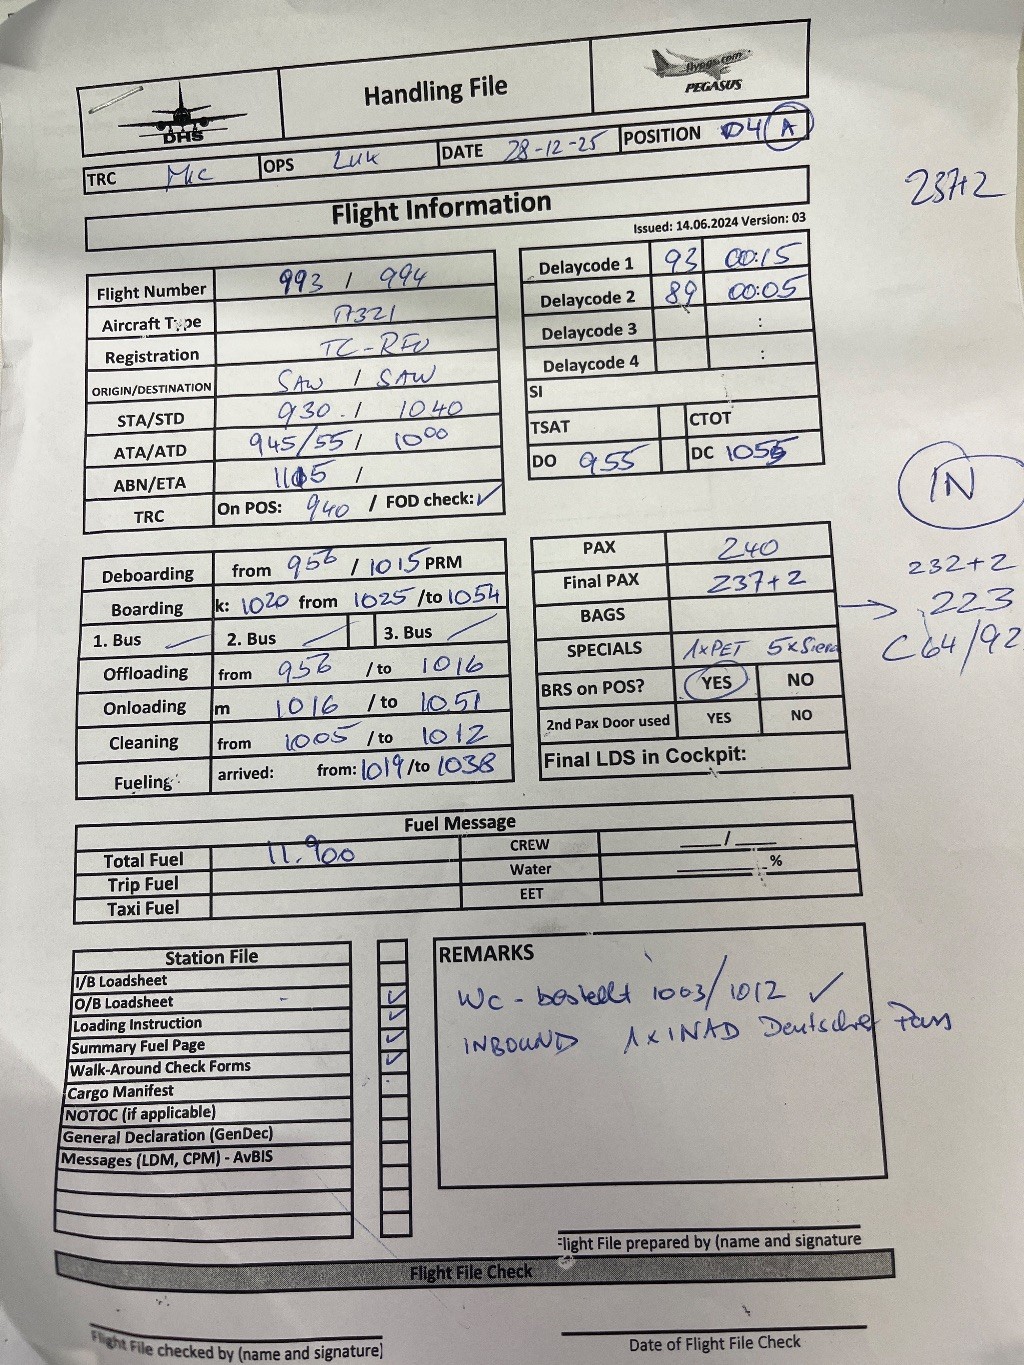 DHS
Handling File
flypgs.com
PEGASUS
TRC Mic OPS Luk DATE 28-12-25 POSITION D4 A
237+2
Flight Information
Issued: 14.06.2024 Version: 03
Flight Number 993 / 994
Aircraft Type A321
Registration TC-RFU
ORIGIN/DESTINATION SAW / SAW
STA/STD 930 / 1040
ATA/ATD 945/55 / 1000
ABN/ETA 1105 /
TRC On POS: 940 / FOD check: ✓
Delaycode 1 93 00:15
Delaycode 2 89 00:05
Delaycode 3 :
Delaycode 4 :
SI
TSAT CTOT
DO 955 DC 1055
IN
232+2
→ 223
C64/92
Deboarding from 956 / 1015 PRM
Boarding k: 1020 from 1025 /to 1054
1. Bus 2. Bus 3. Bus
Offloading from 956 /to 1016
Onloading m 1016 /to 1051
Cleaning from 1005 /to 1012
Fueling: arrived: from: 1019 /to 1038
PAX 240
Final PAX 237+2
BAGS
SPECIALS 1xPET 5x
BRS on POS? YES NO
2nd Pax Door used YES NO
Final LDS in Cockpit:
Fuel Message
Total Fuel 11.900 CREW ___/___
Trip Fuel Water ______%
Taxi Fuel EET
Station File
I/B Loadsheet
O/B Loadsheet ✓
Loading Instruction ✓
Summary Fuel Page ✓
Walk-Around Check Forms ✓
Cargo Manifest
NOTOC (if applicable)
General Declaration (GenDec)
Messages (LDM, CPM) - AvBIS
REMARKS
WC - bestellt 1003/1012 ✓
INBOUND 1x INAD Deutscher Pass
Flight File prepared by (name and signature
Flight File Check
Flight File checked by (name and signature)
Date of Flight File Check